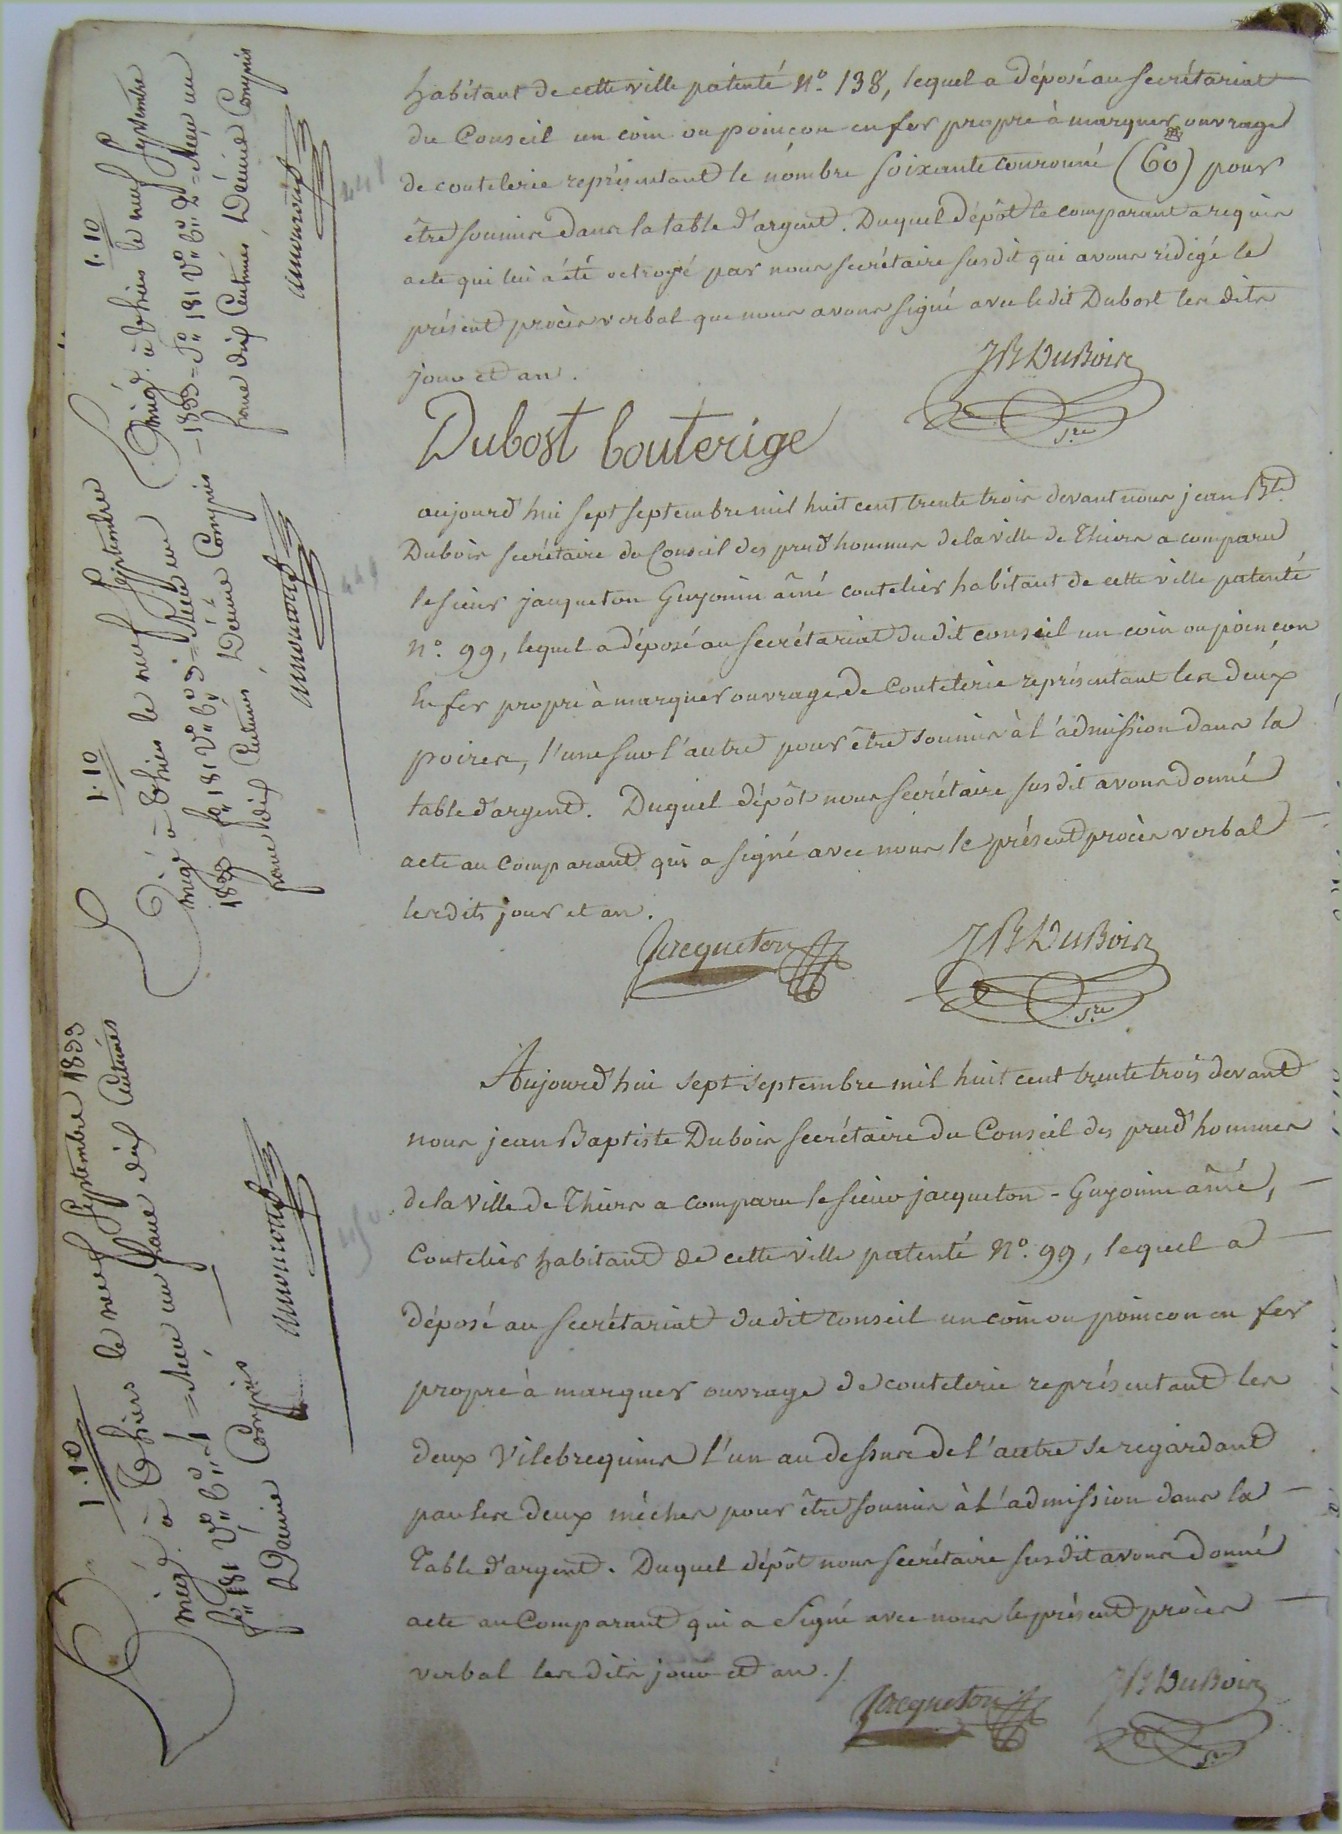 habitant de cette ville patenté N.º 138, lequel a déposé au Secrétariat
du Conseil un coin ou poinçon en fer propre à marquer ouvrage
de coutelerie représentant le nómbre soixante couronné (60) pour
être soumis dans la table d'argent. Duquel dépôt le comparant a requis
acte qui lui a été octroyé par nous secrétaire susdit qui avons rédigé le
présent procès verbal que nous avons signé avec ledit Dubost les dits
jour et an.
JB DuBois
Sre
Dubost bouterige
aujourd'hui sept septembre mil huit cent trente trois devant nous jean Bte
Dubois secrétaire du Conseil des prud'hommes de la ville de Thiers a comparu
le sieur jacqueton Guyonin aîné coutelier habitant de cette ville patenté
n.º 99, lequel a déposé au secrétariat dudit conseil un coin ou poinçon
En fer propre à marquer ouvrage de Coutelerie représentant les deux
poires, l'une sur l'autre pour être soumis à l'admission dans la
table d'argent. Duquel dépôt nous secrétaire susdit avons donné
acte au Comparant qui a signé avec nous le présent procès verbal
lesdits jour et an.
Jacqueton JB DuBois
Sre
Aujourd'hui sept septembre mil huit cent trente trois devant
nous jean Baptiste Dubois secrétaire du Conseil des prud'hommes
de la ville de Thiers a comparu le sieur jacqueton - Guyonin aîné,
Coutelier habitant de cette ville patenté N.º 99, lequel a
déposé au secrétariat dudit conseil un coin ou poinçon en fer
propre à marquer ouvrage de coutelerie représentant les
deux Vilebrequins l'un au dessus de l'autre se regardant
par les deux méches pour être soumis à l'admission dans la
Table d'argent. Duquel dépôt nous secrétaire susdit avons donné
acte au Comparant qui a signé avec nous le présent procès
verbal les dits jour et an./.
Jacqueton JB DuBois
Sre
1.10
à Thiers le neuf Septembre
1833 = fº 181 Vº Cº 2 = Reçu un
franc dix Centimes, Décime Compris
448
1.10
à Thiers le neuf Septembre
1833 = fº 181 Vº Cº 3 = Reçu un
franc dix Centimes, Décime Compris
449
1.10
à Thiers le neuf Septembre 1833
fº 181 Vº Cº 4 = Reçu un franc dix Centimes
Décime Compris
450